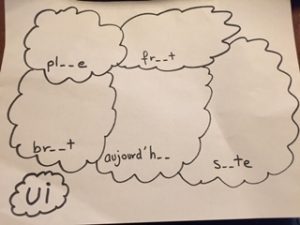 pl__e
fr__t
br__t
aujourd'h__
s__te
ui